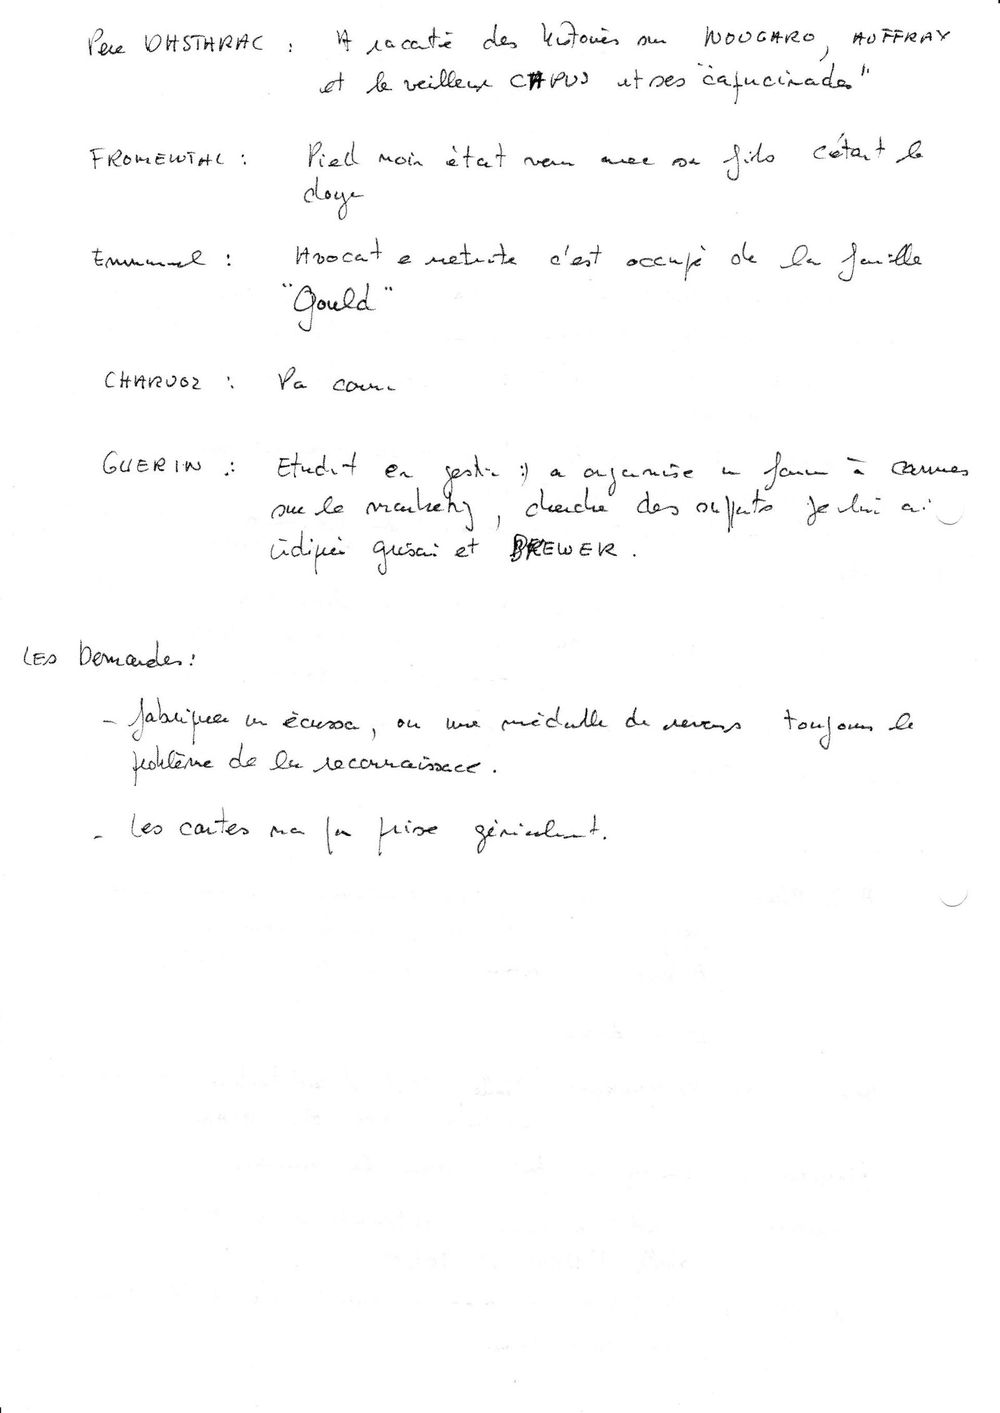 Pere DASTARAC : A raconté des histoires sur NOUGARO, AUFFRAY
et le veilleur CAPUS et ses "capucinades"
FROMENTAL : Pied noir était venu avec son fils c'était le
doyen
Emmanuel : Avocat en retraite c'est occupé de la famille
"Gould"
CHARVOZ : Pa connu
GUERIN : Etudit en gestion il a organisé un forum à cannes
sur le marketing, cherche des supports je lui ai
et BREWER.
LES Demandes :
- fabriquer un écusson, ou une médaille de revers toujours le
problème de la reconnaissance.
- Les cartes prise généralement.